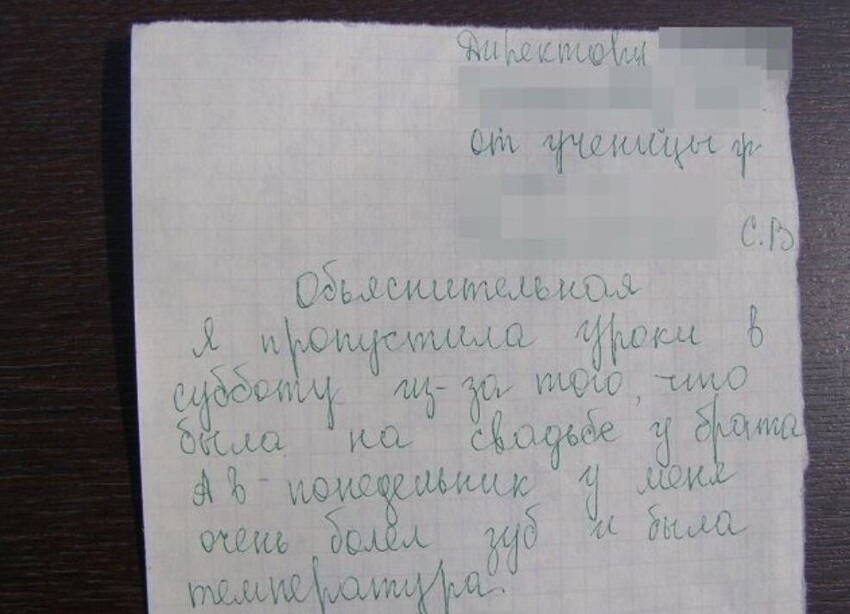 Директору
от ученицы
С.В
Обьяснительная
Я пропустила уроки в
субботу из-за того, что
была на свадьбе у брата
А в понедельник у меня
очень болел зуб и была
температура.